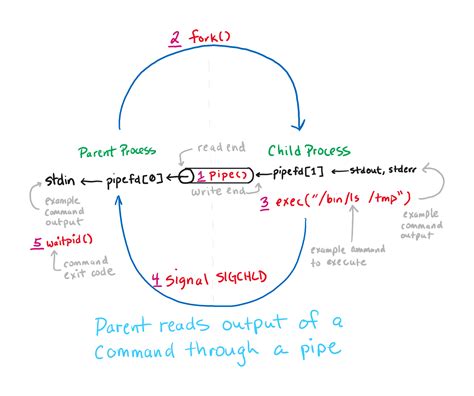 2 fork()
Parent Process
Child Process
read end
stdin
pipefd[0]
1 Pipe()
pipefd[1]
stdout, stderr
write end
example
command
output
3 exec("/bin/ls /tmp")
5 waitpid()
command
exit code
example command
to execute
example
command
output
4 Signal SIGCHLD
Parent reads output of a
Command through a pipe